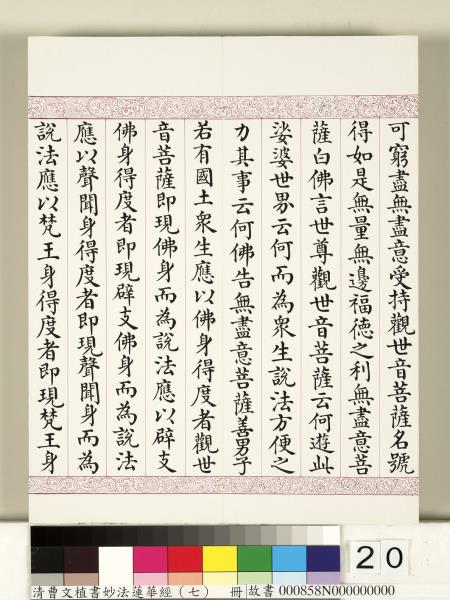 可窮盡無盡意受持觀世音菩薩名號
得如是無量無邊福德之利無盡意菩
薩白佛言世尊觀世音菩薩云何遊此
娑婆世界云何而為眾生說法方便之
力其事云何佛告無盡意菩薩善男子
若有國土眾生應以佛身得度者觀世
音菩薩即現佛身而為說法應以辟支
佛身得度者即現辟支佛身而為說法
應以聲聞身得度者即現聲聞身而為
說法應以梵王身得度者即現梵王身
20
清曹文植書妙法蓮華經（七） 冊 故書 000858N000000000